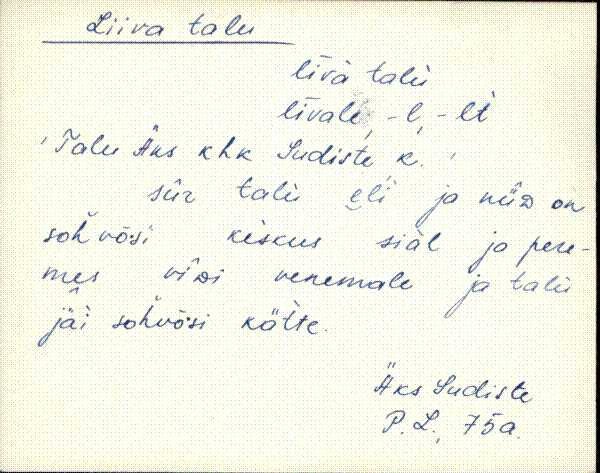 Liiva talu
līvà talù
līvale, -l, -lt
'Talu Äks khk Sudiste k.'
sūr talù eli ja nüid on
sohvõ·si keskus siäl ja pere-
mes vīdi venemale ja talù
jäi sohvõ·si kätte.
Äks Sudiste
P. L., 75 a.